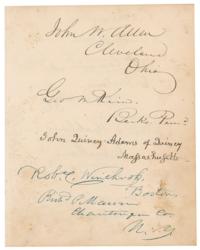 John W. Allen
Cleveland
Ohio
Geo. M. Keim.
Berks Penn?
John Quincy Adams of Quincy
Massachusetts
Robt C. Winthrop
Boston
Richd P. Marvin
Chautauque Co.
N.Y.